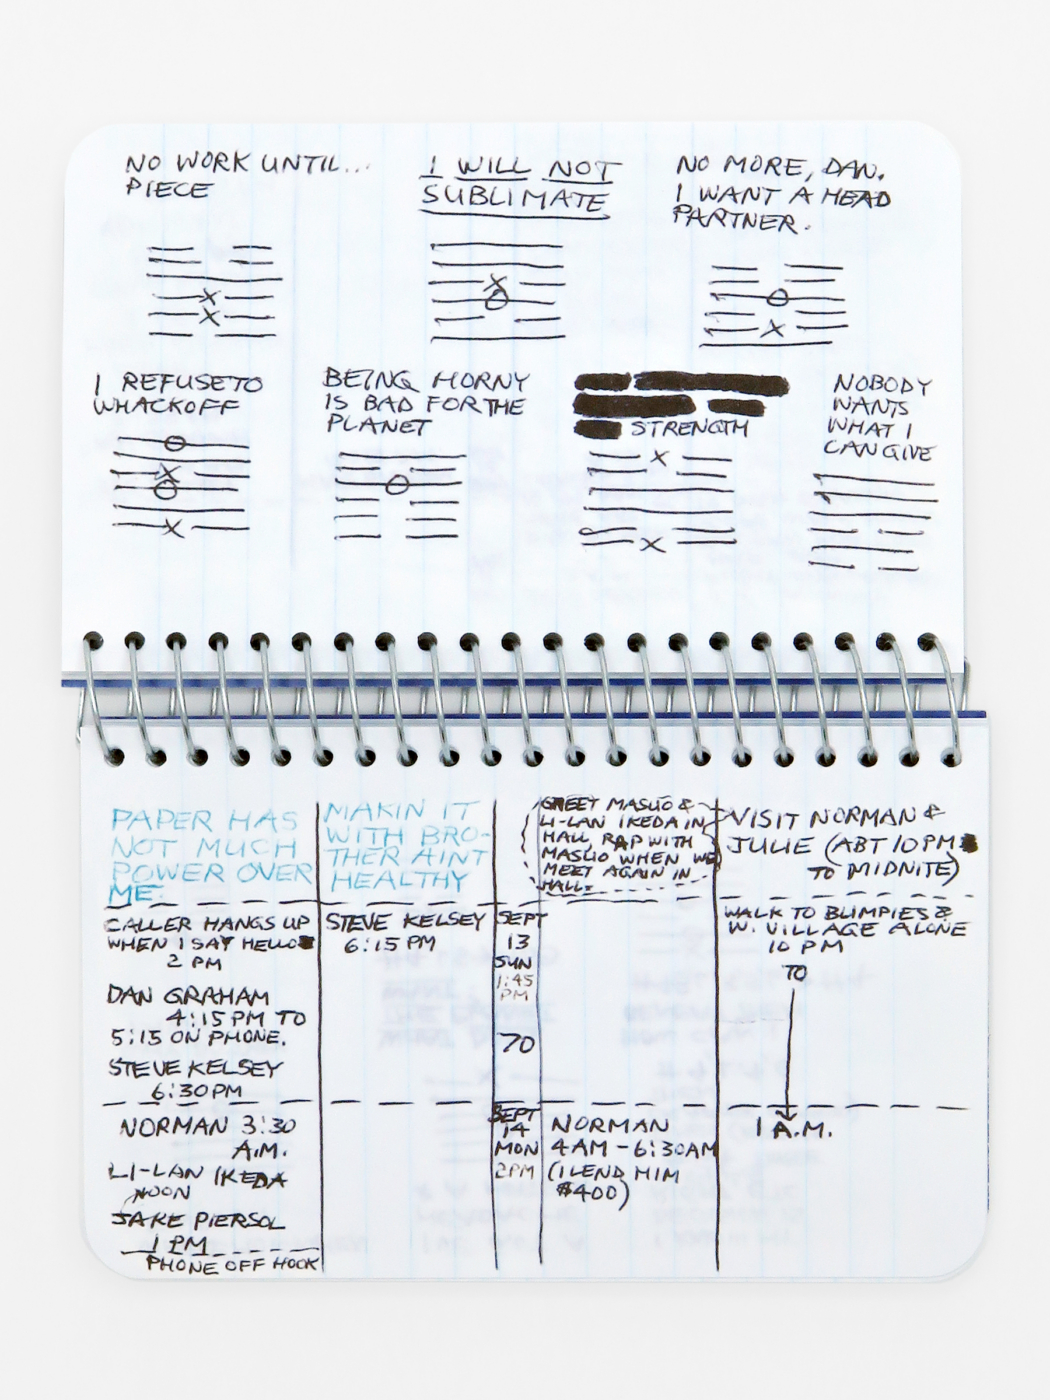 NO WORK UNTIL...
PIECE
I WILL NOT
SUBLIMATE
NO MORE, DAN.
I WANT A HEAD
PARTNER.
I REFUSE TO
WHACKOFF
BEING HORNY
IS BAD FOR THE
PLANET
STRENGTH
NOBODY
WANTS
WHAT I
CAN GIVE
PAPER HAS
NOT MUCH
POWER OVER
ME.
MAKIN IT
WITH BRO-
THER AINT
HEALTHY
GREET MASLIO &
LI-LAN IKEDA IN
HALL, RAP WITH
MASLIO WHEN WE
MEET AGAIN IN
HALL.
VISIT NORMAN &
JULIE (ABT 10PM
TO MIDNITE)
CALLER HANGS UP
WHEN I SAY HELLO
2 PM
DAN GRAHAM
4:15 PM TO
5:15 ON PHONE.
STEVE KELSEY
6:30PM
STEVE KELSEY
6:15 PM
SEPT
13
SUN
1:45
PM
70
WALK TO BLIMPIES &
W. VILLAGE ALONE
10 PM
TO
1 A.M.
NORMAN 3:30
A.M.
LI-LAN IKEDA
NOON
JAKE PIERSOL
1 PM
PHONE OFF HOOK
SEPT
14
MON
2PM
NORMAN
4AM - 6:30AM
(I LEND HIM
$400)